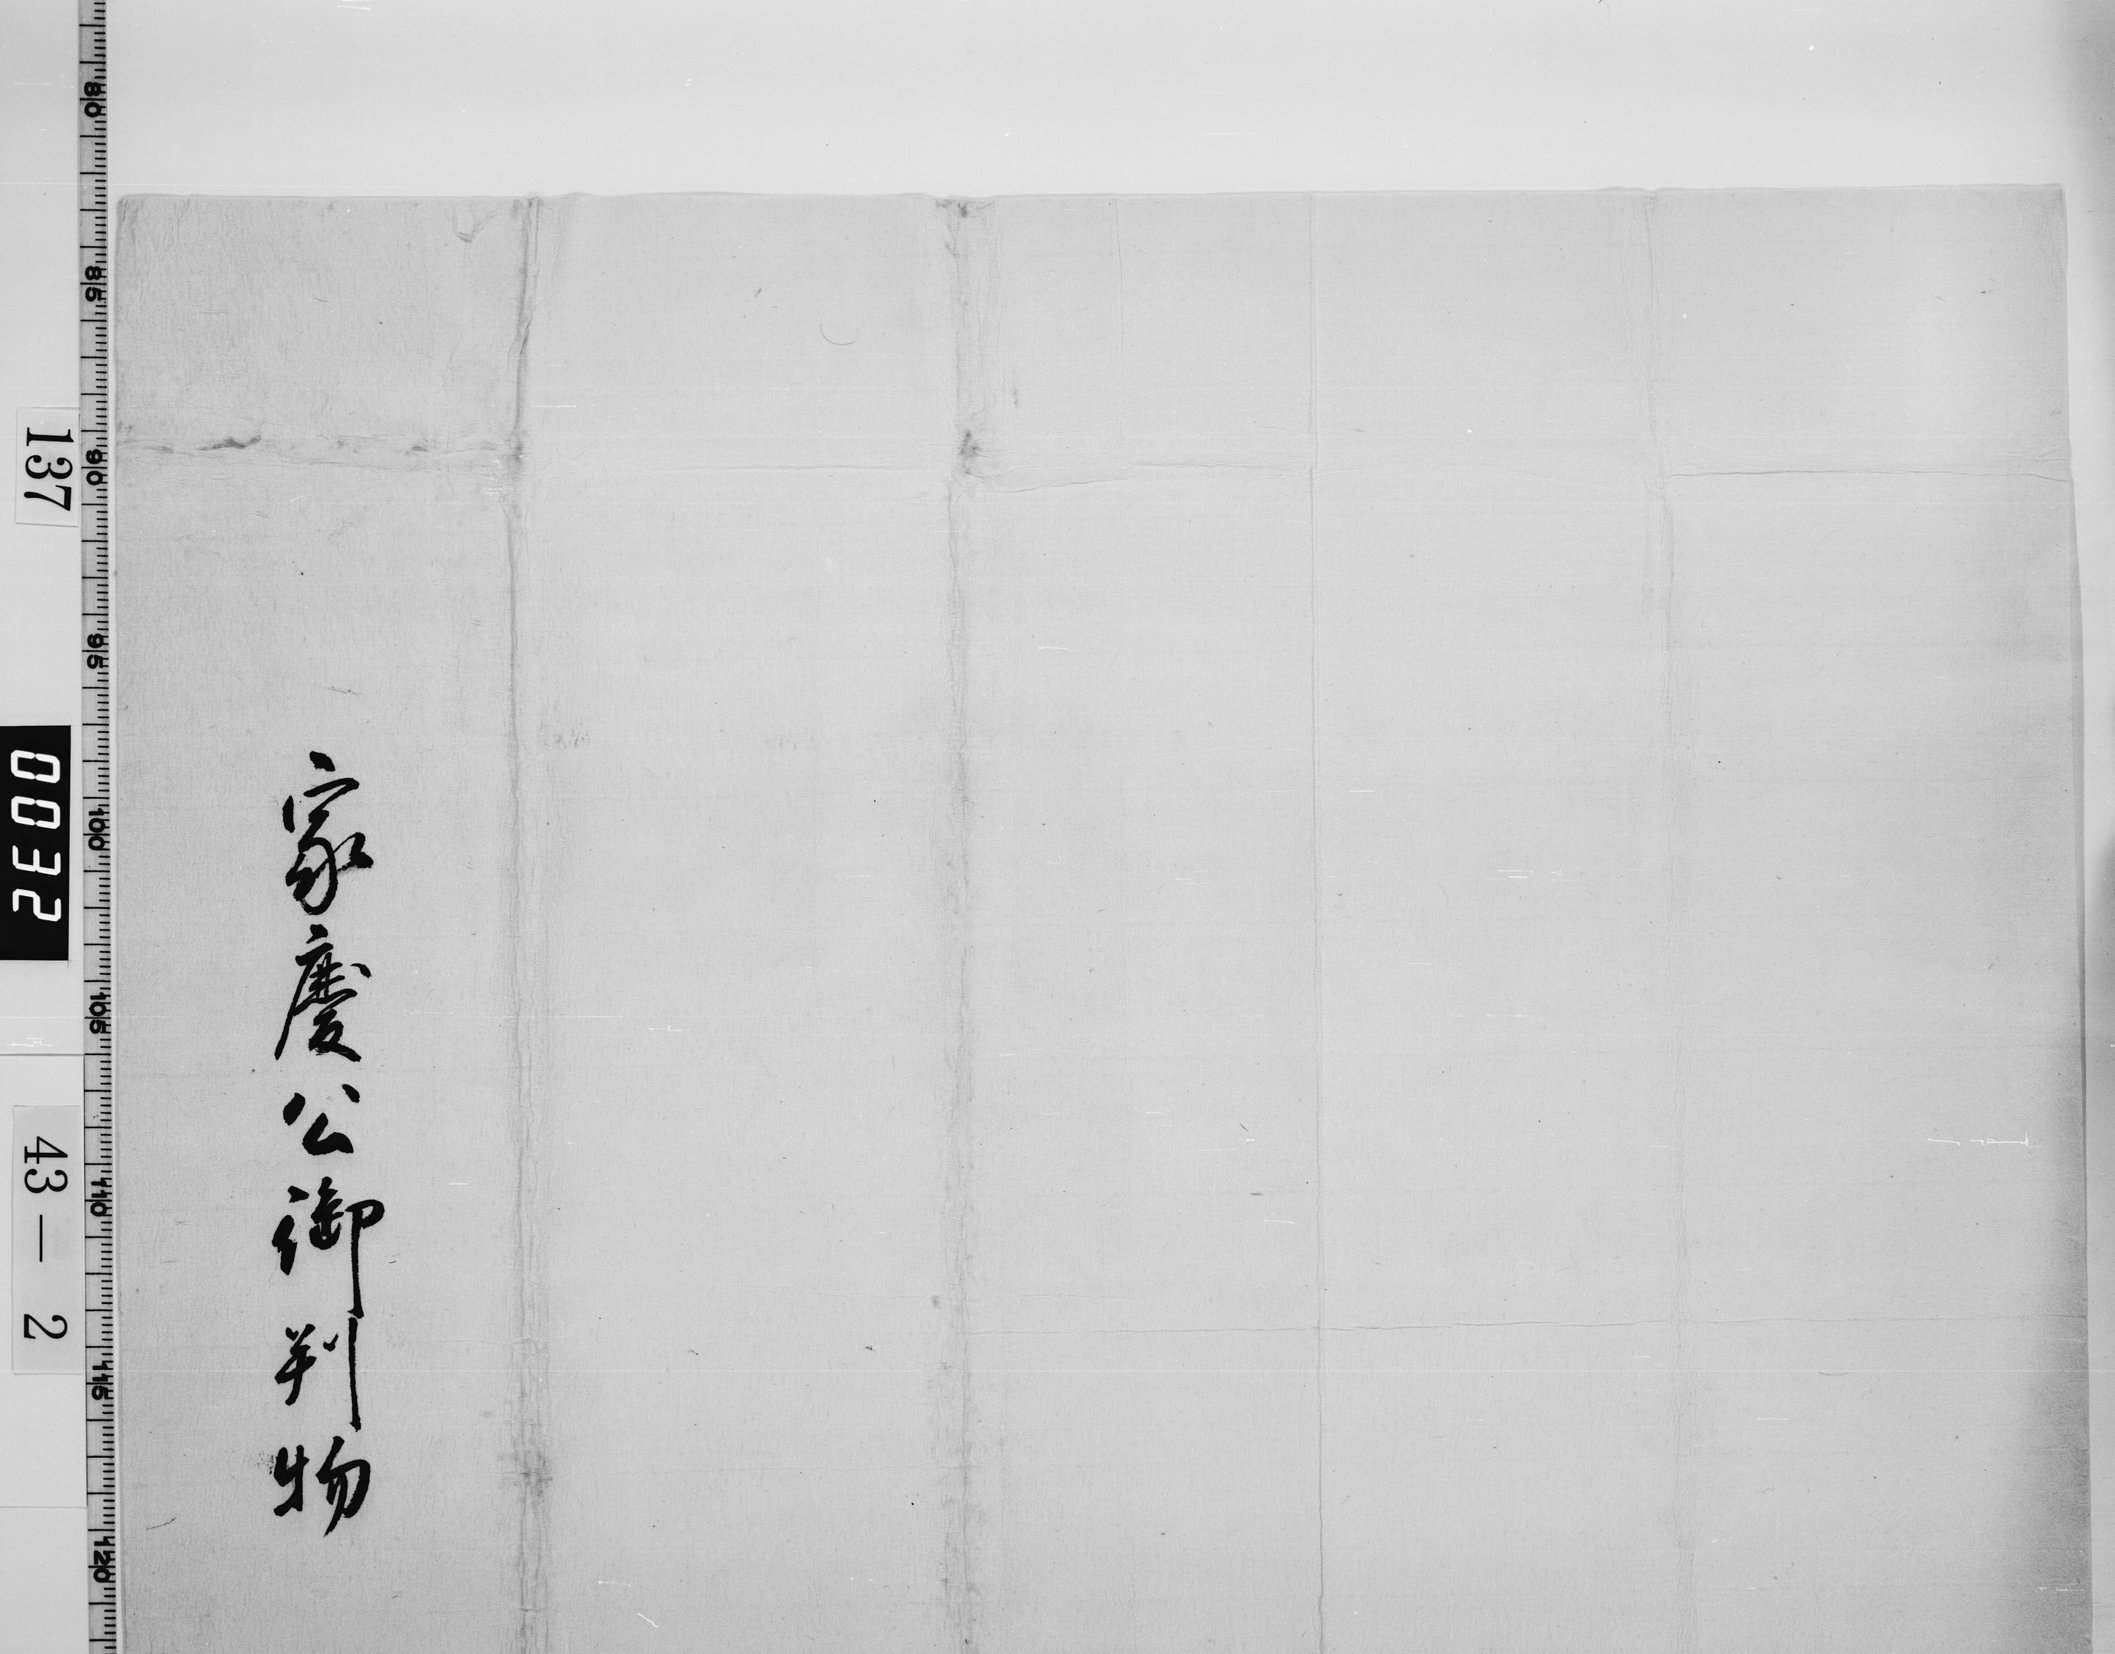 家慶公御判物
137
0032
43—2
80
85
90
95
100
105
110
115
120